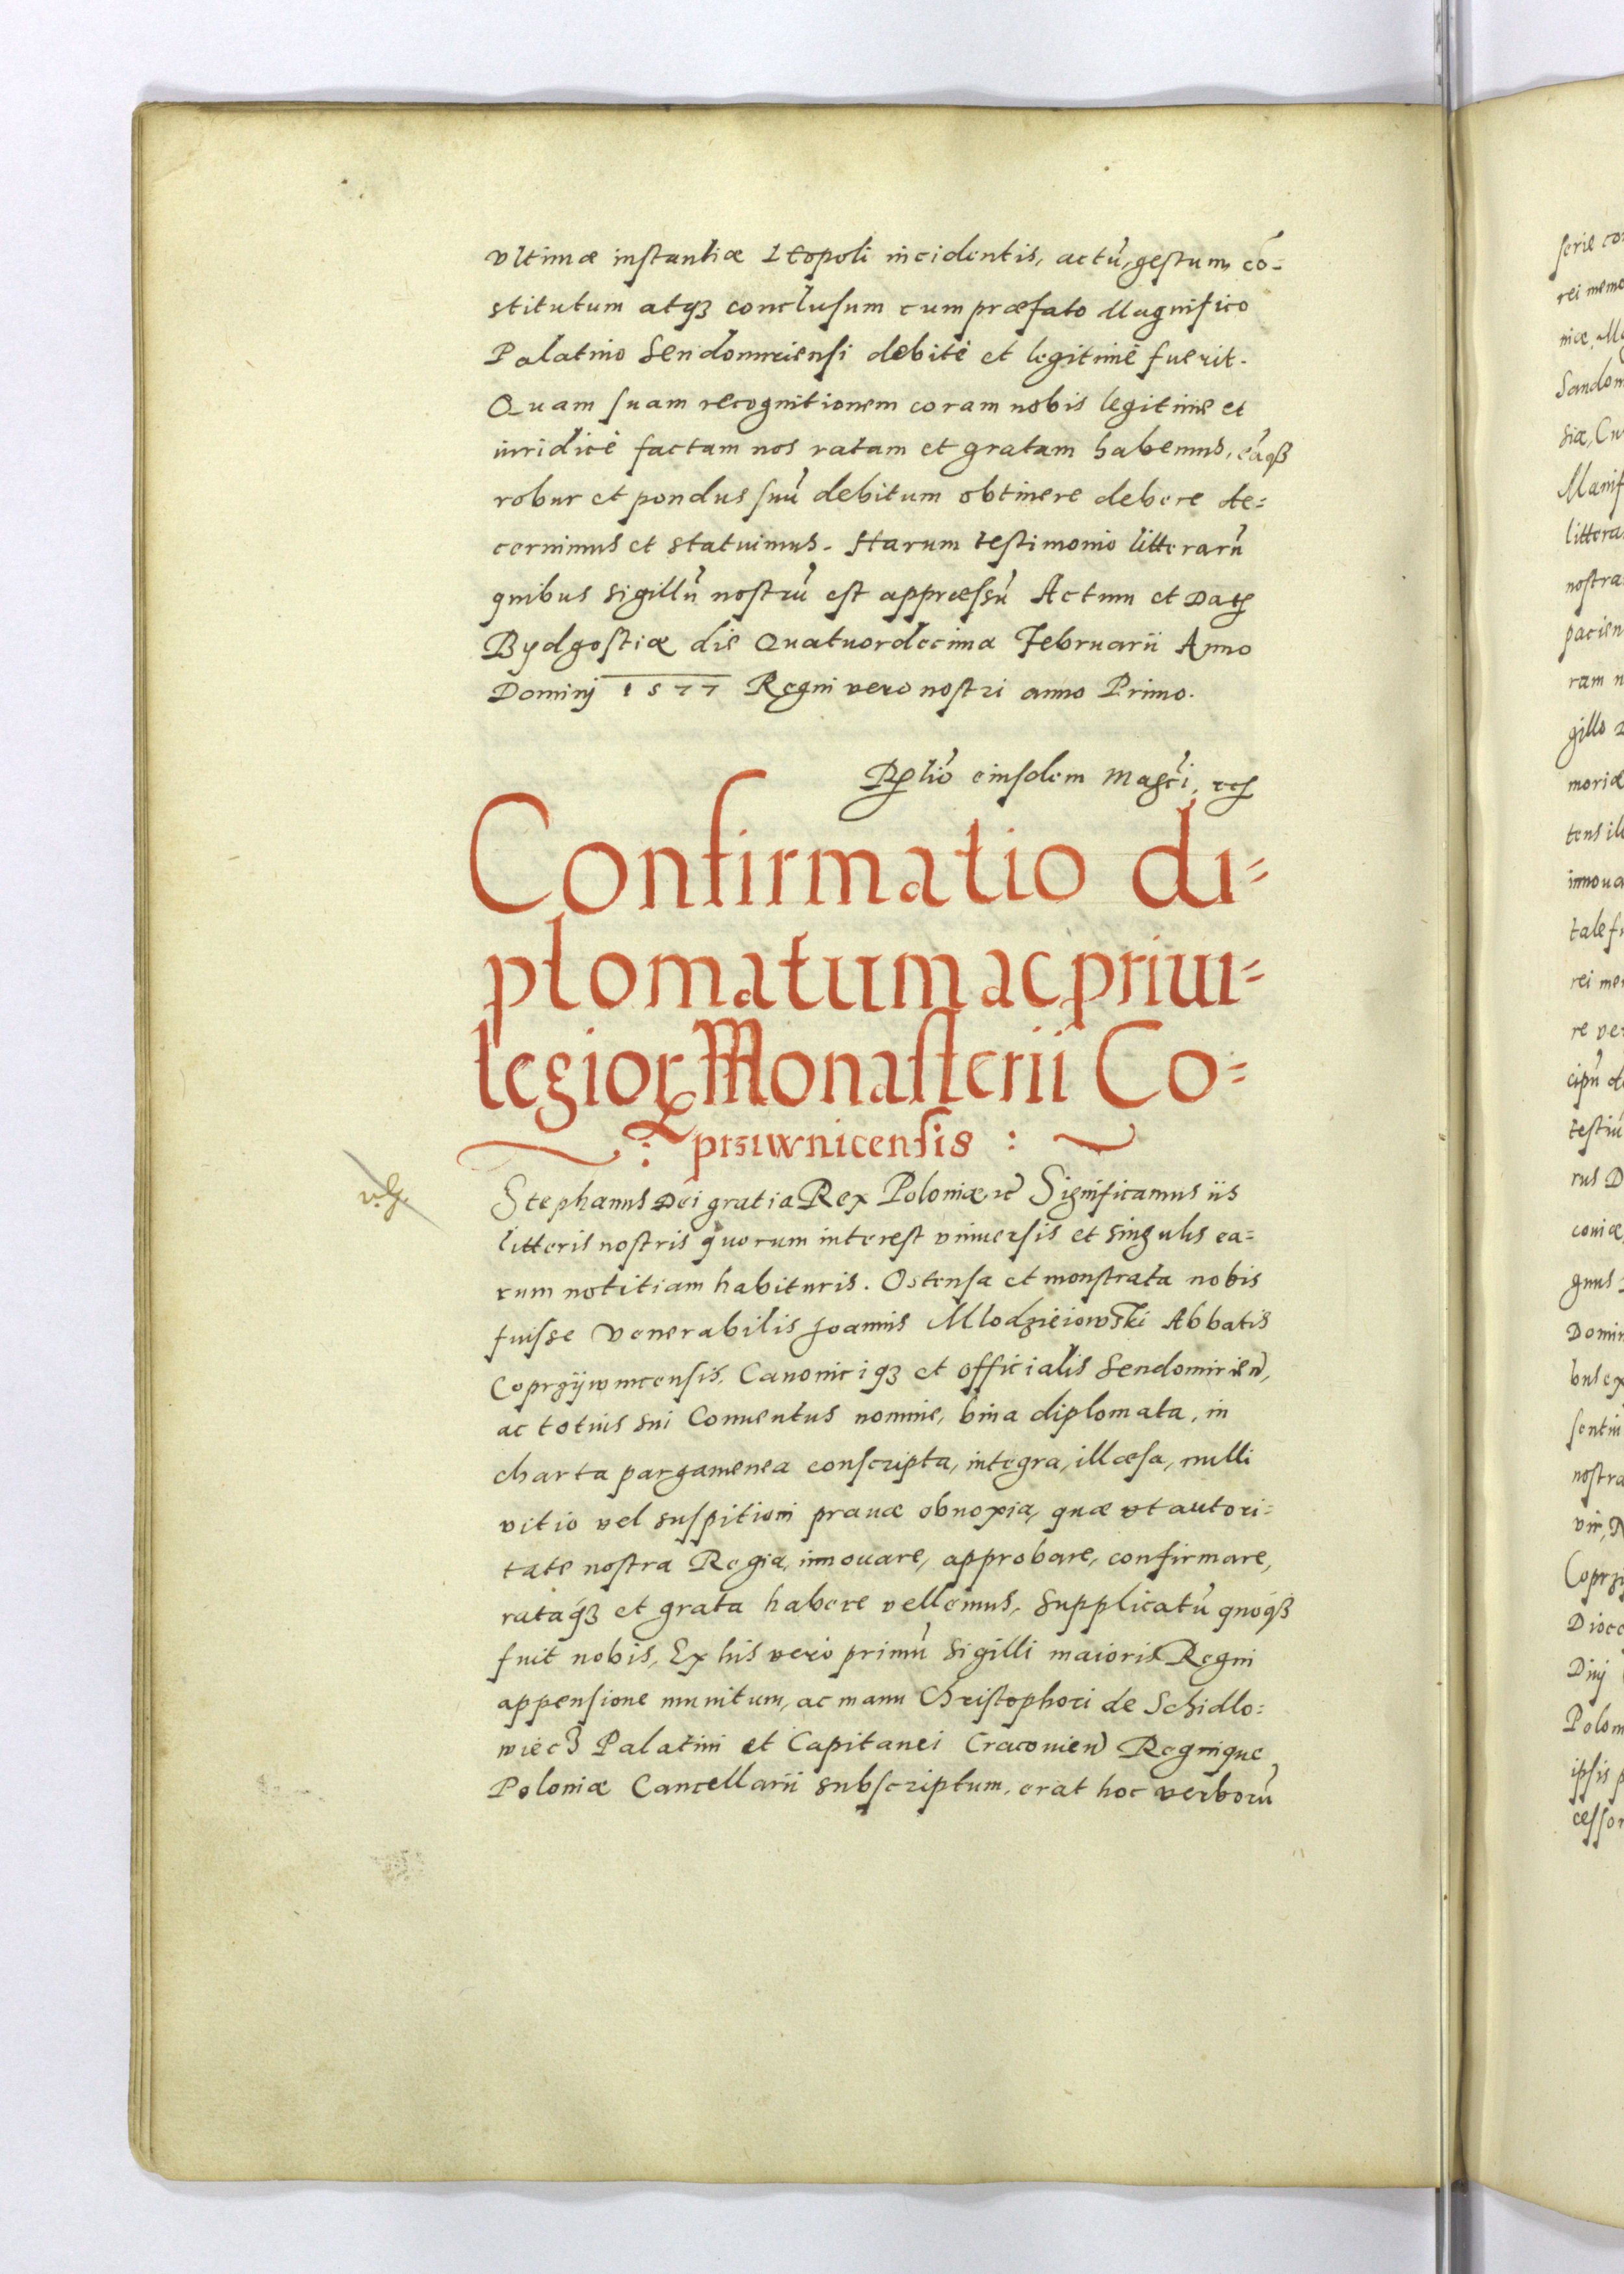 vltimæ instantiæ Leopoli incidentis, actũ, gestum, cõ-
stitutum atqꝫ conclusum cum præfato Magnifico
Palatino Sendomiriensi debitè et legitimè fuerit.
Quam suam recognitionem coram nobis legitime et
iuridicè factam nos ratam et gratam habemus, eãqꝫ
robur et pondus suũ debitum obtinere debere de=
cernimus et statuimus. Harum testimonio litterarũ
quibus sigillũ nostrũ est appræssũ Actum et Datꝭ
Bydgostiæ die Quatuordecima Februarii Anno
Dominj 1577 Regni vero nostri anno Primo.
eiusdem
Confirmatio di=
plomatum ac priui=
legioꝝ Monasterii Co=
: przıwnicensis :
Stephanus Dei gratia Rex Poloniæ ꝛc̃ Significamus iis
litteris nostris quorum interest vniuersis et singulis ea=
rum notitiam habituris. Ostensa et monstrata nobis
fuisse Venerabilis Joannis Mlodzieiowski Abbatis
Coprzÿwnicensis, Canoniciqꝫ et officialis Sendomirieñ,
ac totius sui Conuentus nomine, bina diplomata, in
charta pargamenea conscripta, integra, illæsa, nulli
vitio vel suspitioni prauæ obnoxia, quæ vt autori=
tate nostra Regia, innouare, approbare, confirmare,
rataqꝫ et grata habere vellemus, supplicatũ quoqꝫ
fuit nobis, Ex his verò primũ sigilli maioris Regni
appensione munitum, ac manu Christophori de Schidlo=
wiecz Palatini et Capitanei Cracovieñ Regnique
Poloniæ Cancellarii subscriptum, erat hoc verborũ